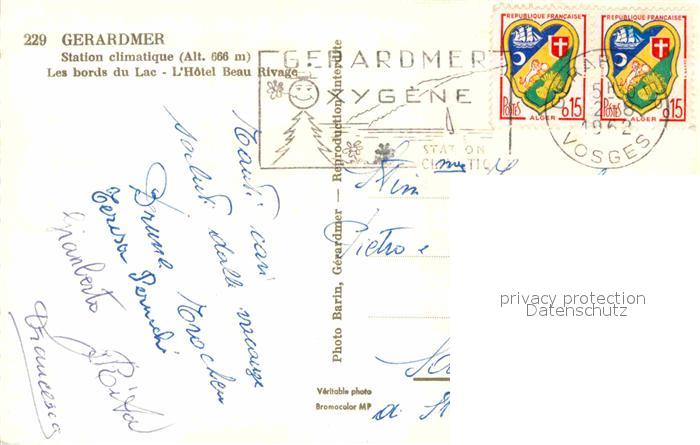 229 GERARDMER
Station climatique (Alt. 666 m)
Les bords du Lac - L'Hôtel Beau Rivage
GERARDMER
OXYGÈNE
STATION
CLIMATIQUE
REPUBLIQUE FRANÇAISE
POSTES 0,15
ALGER
REPUBLIQUE FRANÇAISE
POSTES 0,15
ALGER
GERARDMER
1962
VOSGES
Tanti cari
saluti dalle vacanze
Bruna
Teresa
Gianberto Rita
Francesca
Photo Barin, Gérardmer - Reproduction interdite
Pietro e
Véritable photo
Bromocolor MP
privacy protection
Datenschutz